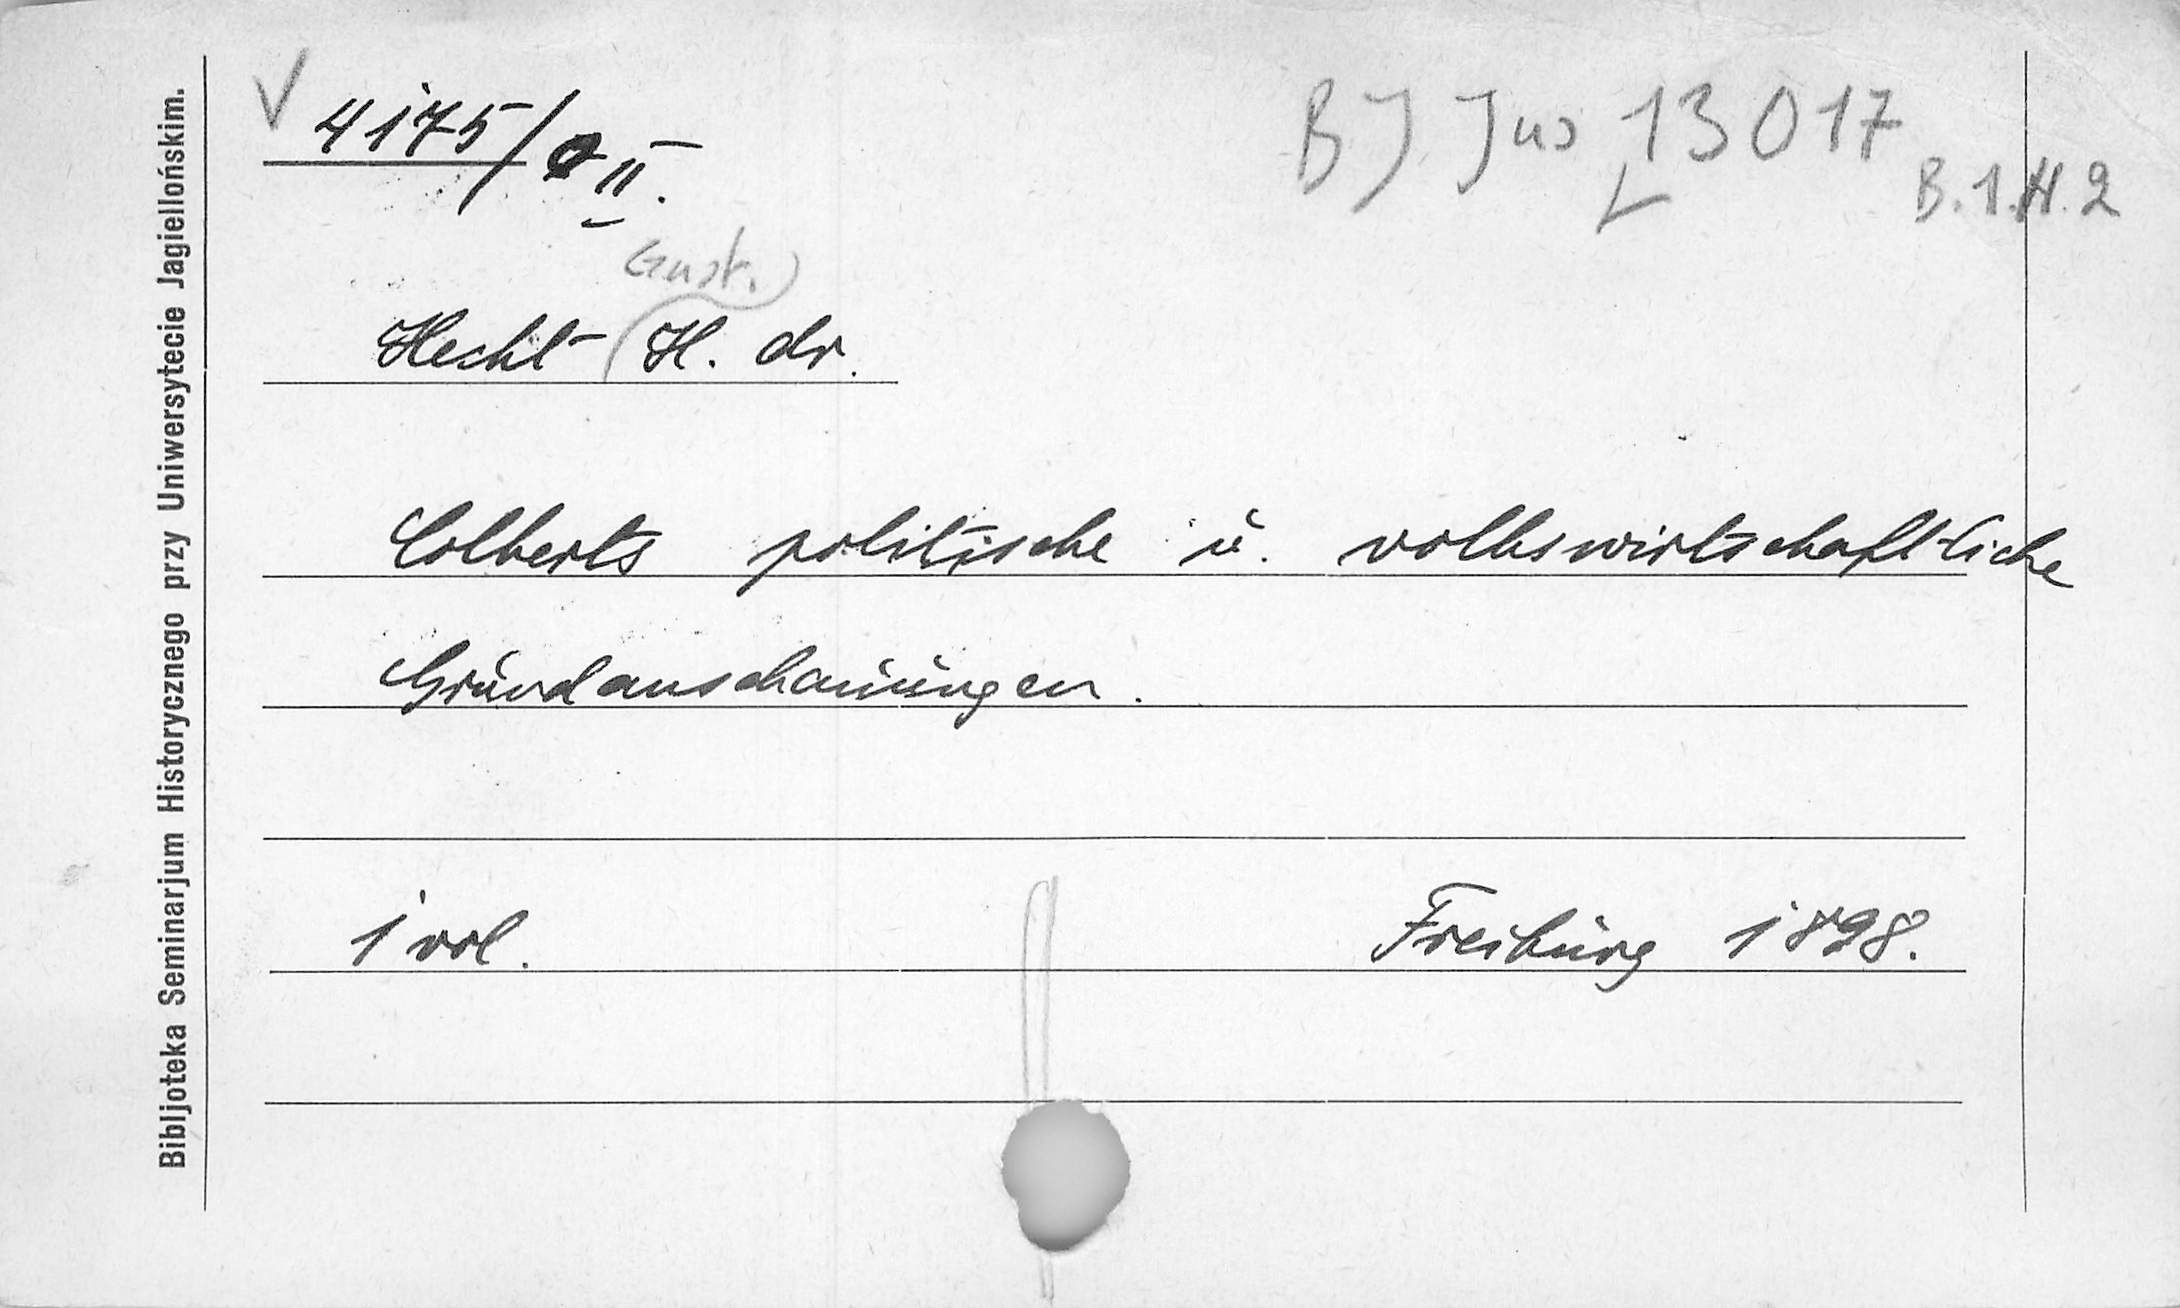 Bibljoteka Seminarjum Historycznego przy Uniwersytecie Jagiellońskim.
4175/ II.
BJ Jus 13017
B.1.H.2
Gust.
Hecht H. dr.
Colberts politische u. volkswirtschaftliche
Grundanschauungen.
1 vol. Freiburg 1898.